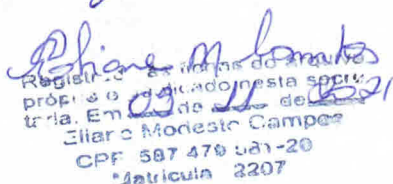 Eliane M Campos
Registrado às normas do
próprio o publicado nesta secre
taria. Em 09 de 11 de 2021
Eliane Modesto Campos
CPF 587 479 -20
Matricula 2207